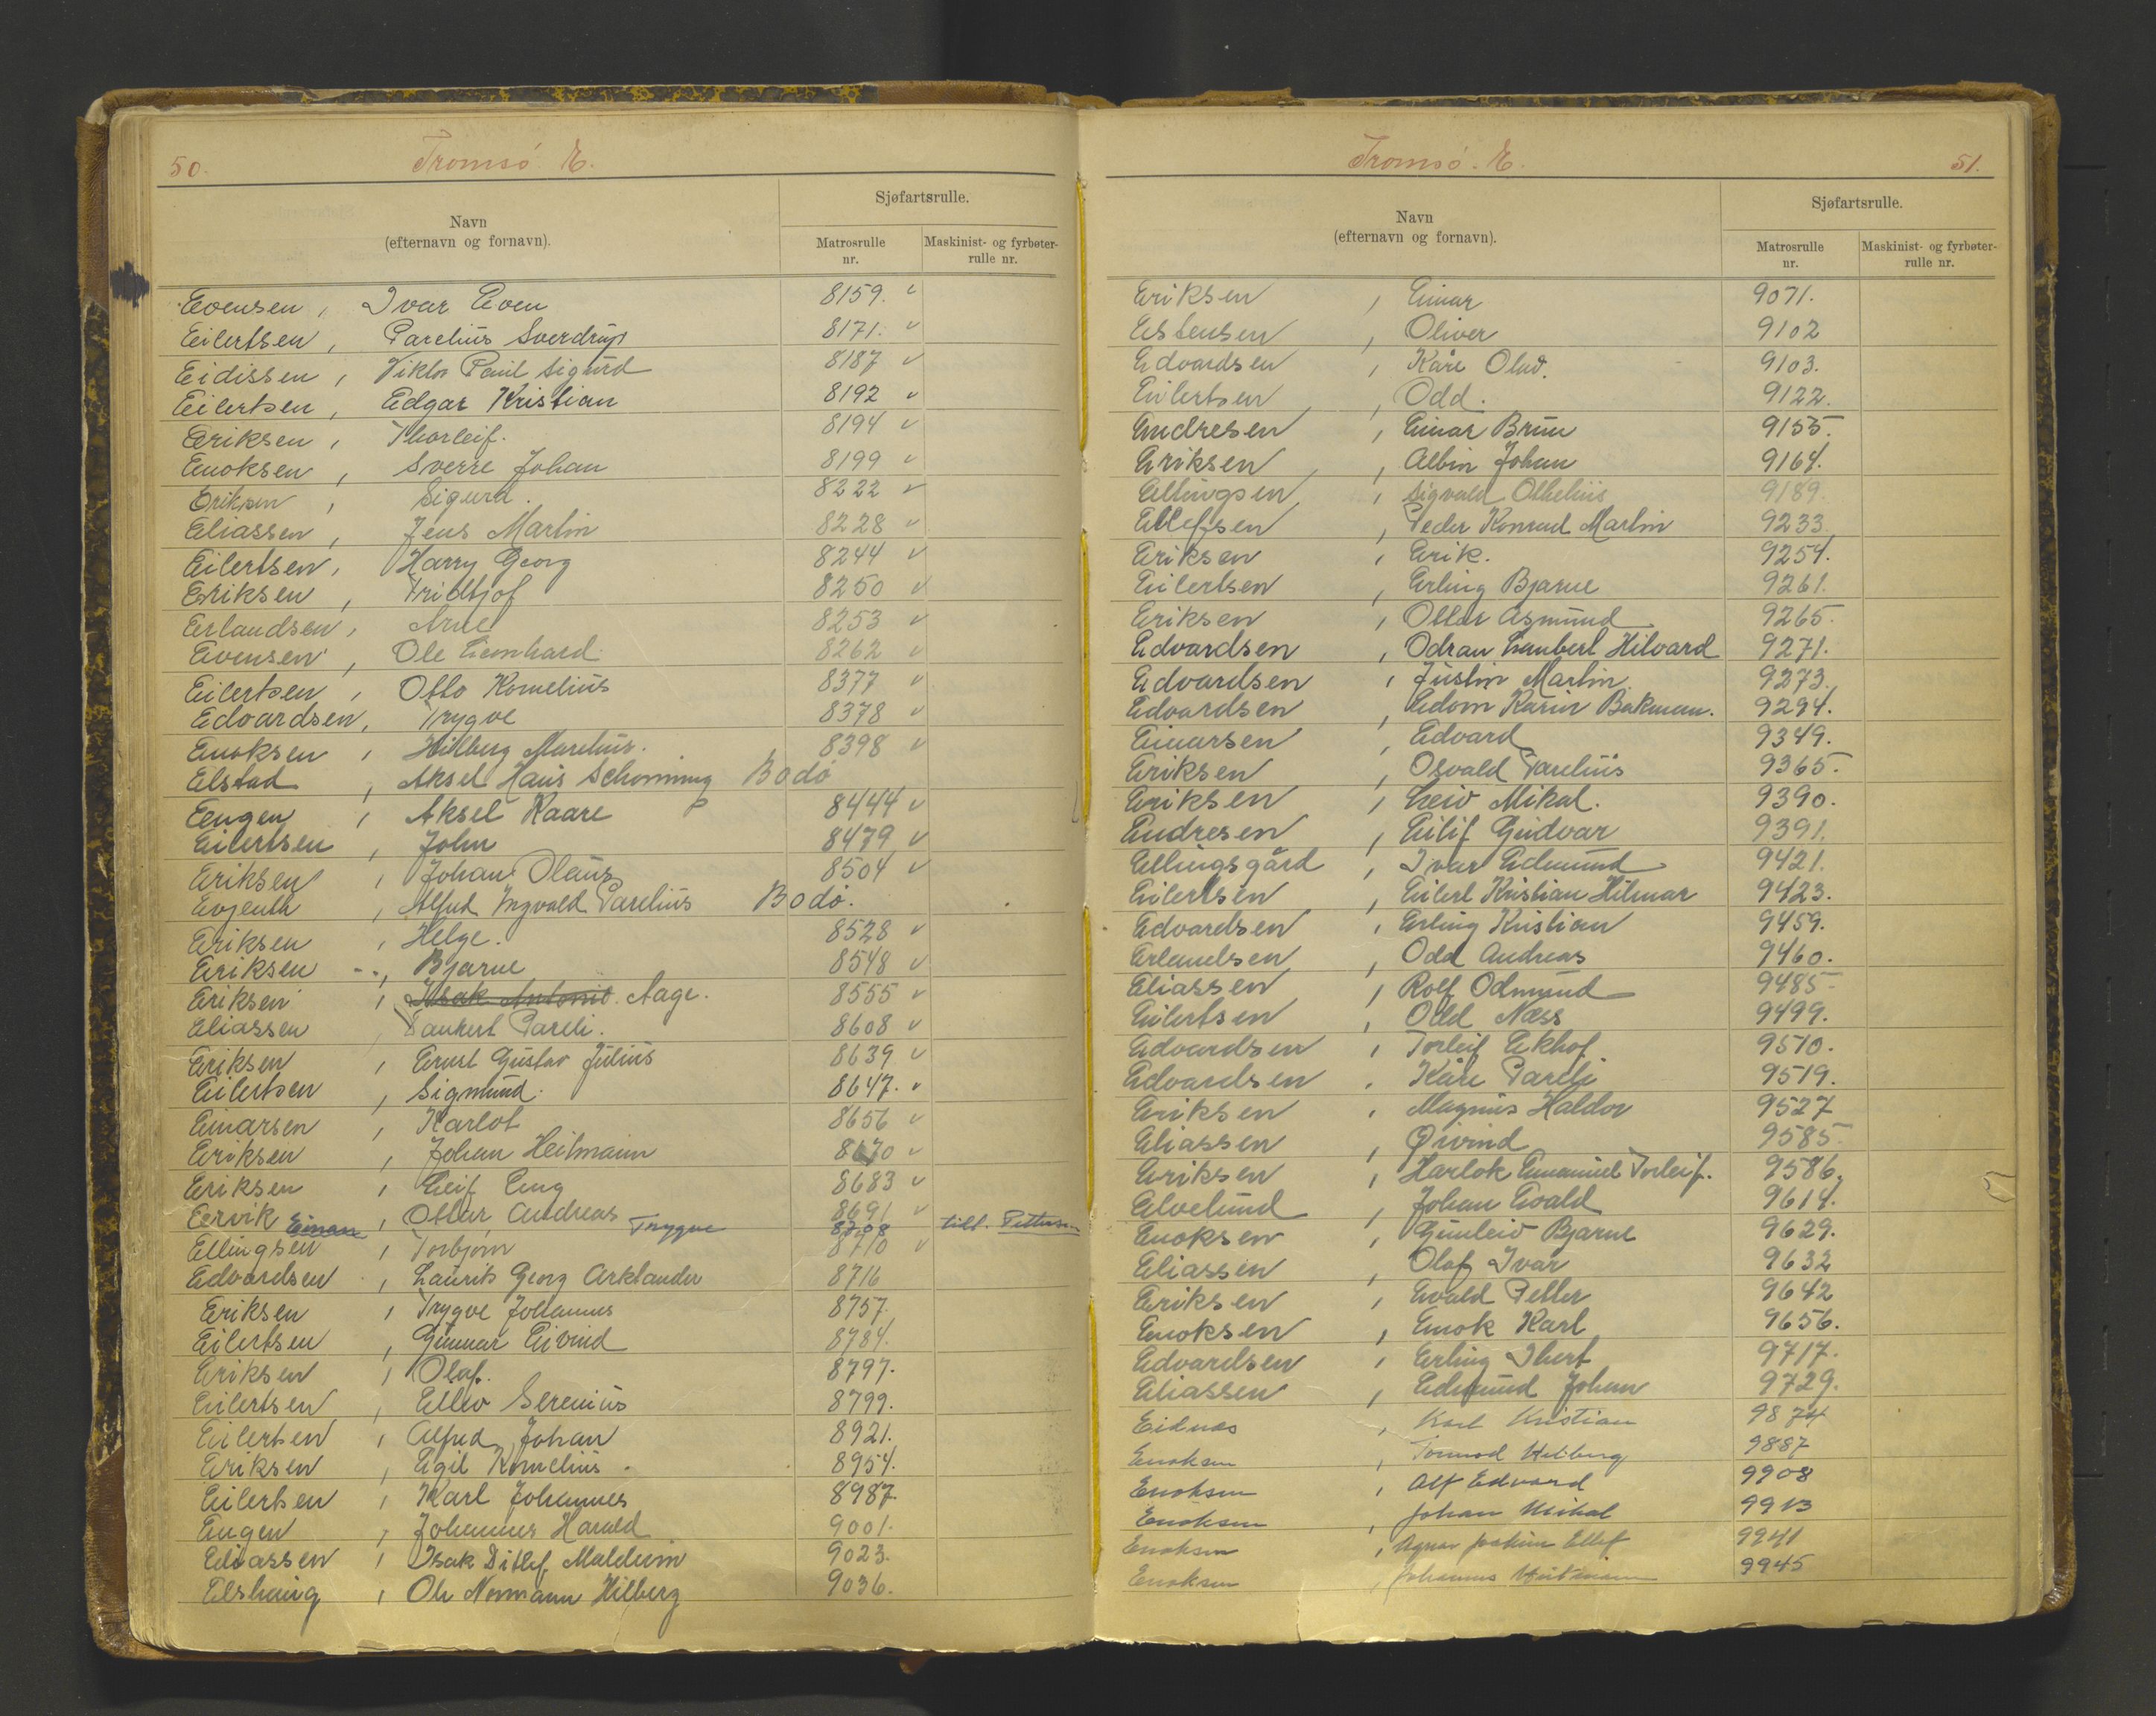 50.
Tromsø E.
Navn
(efternavn og fornavn).
Sjøfartsrulle.
Matrosrulle nr.
Maskinist- og fyrbøter-rulle nr.
Evensen, Ivar Even 8159. v
Eilertsen, Parelius Sverdrup 8171. v
Eidissen, Viktor Paul Sigurd 8187 v
Eilertsen, Edgar Kristian 8192 v
Eriksen, Thorleif. 8194 v
Enoksen, Sverre Johan 8199 v
Eriksen, Sigurd. 8222 v
Eliassen, Jens Martin 8228 v
Eilertsen, Harry Georg 8244 v
Eriksen, Fridtjof 8250 v
Erlandsen, Arne 8253 v
Evensen, Ole Leonhard 8262 v
Eilertsen, Otto Kornelius 8377 v
Edvardsen, Trygve 8378 v
Enoksen, Hilberg Marelius. 8398 v
Elstad, Aksel Hans Schonning Bodø
Eengen, Aksel Kaare 8444 v
Eilertsen, John 8479 v
Eriksen, Johan Olaus 8504 v
Evjenth, Alfred Ingvald Parelius Bodø.
Eriksen, Helge. 8528 v
Eriksen, Bjarne 8548 v
Eriksen, Isak Antonie. Aage. 8555 v
Eliassen, Pareli. 8608 v
Eriksen, Ernst Gustav Julius 8639 v
Eilertsen, Sigmund. 8647. v
Einarsen, Karlot 8656 v
Eriksen, Johan Heitmann 8670 v
Eriksen, Leif Eng 8683 v
Eervik, Ottar Andreas 8691 v
Einan Trygve 8708 till. Pettersen
Ellingsen, Torbjørn 8710 v
Edvardsen, Laurits Georg Arklander 8716
Eriksen, Trygve Johannes 8757.
Eilertsen, Gunnar Eivind 8784.
Eriksen, Olaf. 8797.
Eilertsen, Ellev Serenius 8799.
Eilertsen, Alfred Johan 8921.
Eriksen, Egil Kornelius. 8954.
Eilertsen, Karl Johannes 8987.
Engen, Johannes Harald 9001.
Eliassen, Isak Ditlef Maldum 9023.
Elshaug, Ole Normann Hilberg 9036.
Tromsø. E.
51.
Navn
(efternavn og fornavn).
Sjøfartsrulle.
Matrosrulle nr.
Maskinist- og fyrbøter-rulle nr.
Eriksen, Einar 9071.
Estensen, Oliver 9102
Edvardsen, Kåre Olav. 9103.
Eilertsen, Odd. 9122.
Endresen, Einar Brun 9155.
Eriksen, Albin Johan 9164.
Ellingsen, Sigvald Othelius 9189.
Ellefsen, Peder Konrad Martin 9233.
Eriksen, Erik. 9254.
Eilertsen, Erling Bjarne 9261.
Eriksen, Ottar Asmund 9265.
Edvardsen, Odran Lambert Hilvard 9271.
Edvardsen, Justin Martin 9273.
Edvardsen, Edom Karin Bakman. 9294.
Einarsen, Edvard 9349.
Eriksen, Osvald Parelius 9365.
Eriksen, Leiv Mikal. 9390.
Endresen, Eilif Gudvar 9391.
Ellingsgård, Ivar Edmund 9421.
Eilertsen, Eilert Kristian Hilmar 9423.
Edvardsen, Erling Kristian 9459.
Erlandsen, Odd Andreas 9460.
Eliassen, Rolf Odmund 9485
Eilertsen, Odd Næss 9499.
Edvardsen, Torleif Ekhof 9510.
Edvardsen, Kåre Pareli 9519.
Eriksen, Magnus Haldor 9527
Eliassen, Øivind 9585.
Eriksen, Harlok Emanuel Torleif. 9586.
Elvelund, Johan Evald 9614.
Enoksen, Gunleiv Bjarne 9629.
Eliassen, Olaf Ivar 9632
Eriksen, Evald Petter 9642
Enoksen, Enok Karl 9656.
Edvardsen, Erling Ibert 9717.
Eliassen, Edmund Johan 9729.
Eidnes, Karl Kristian 9874
Enoksen, Tormod Hilberg 9887
Enoksen, Alf Edvard 9908
Enoksen, Johan Mikal 9913
Enoksen, Agnar Joakim Ellef 9941
Enoksen, Johannes Heitmann 9945